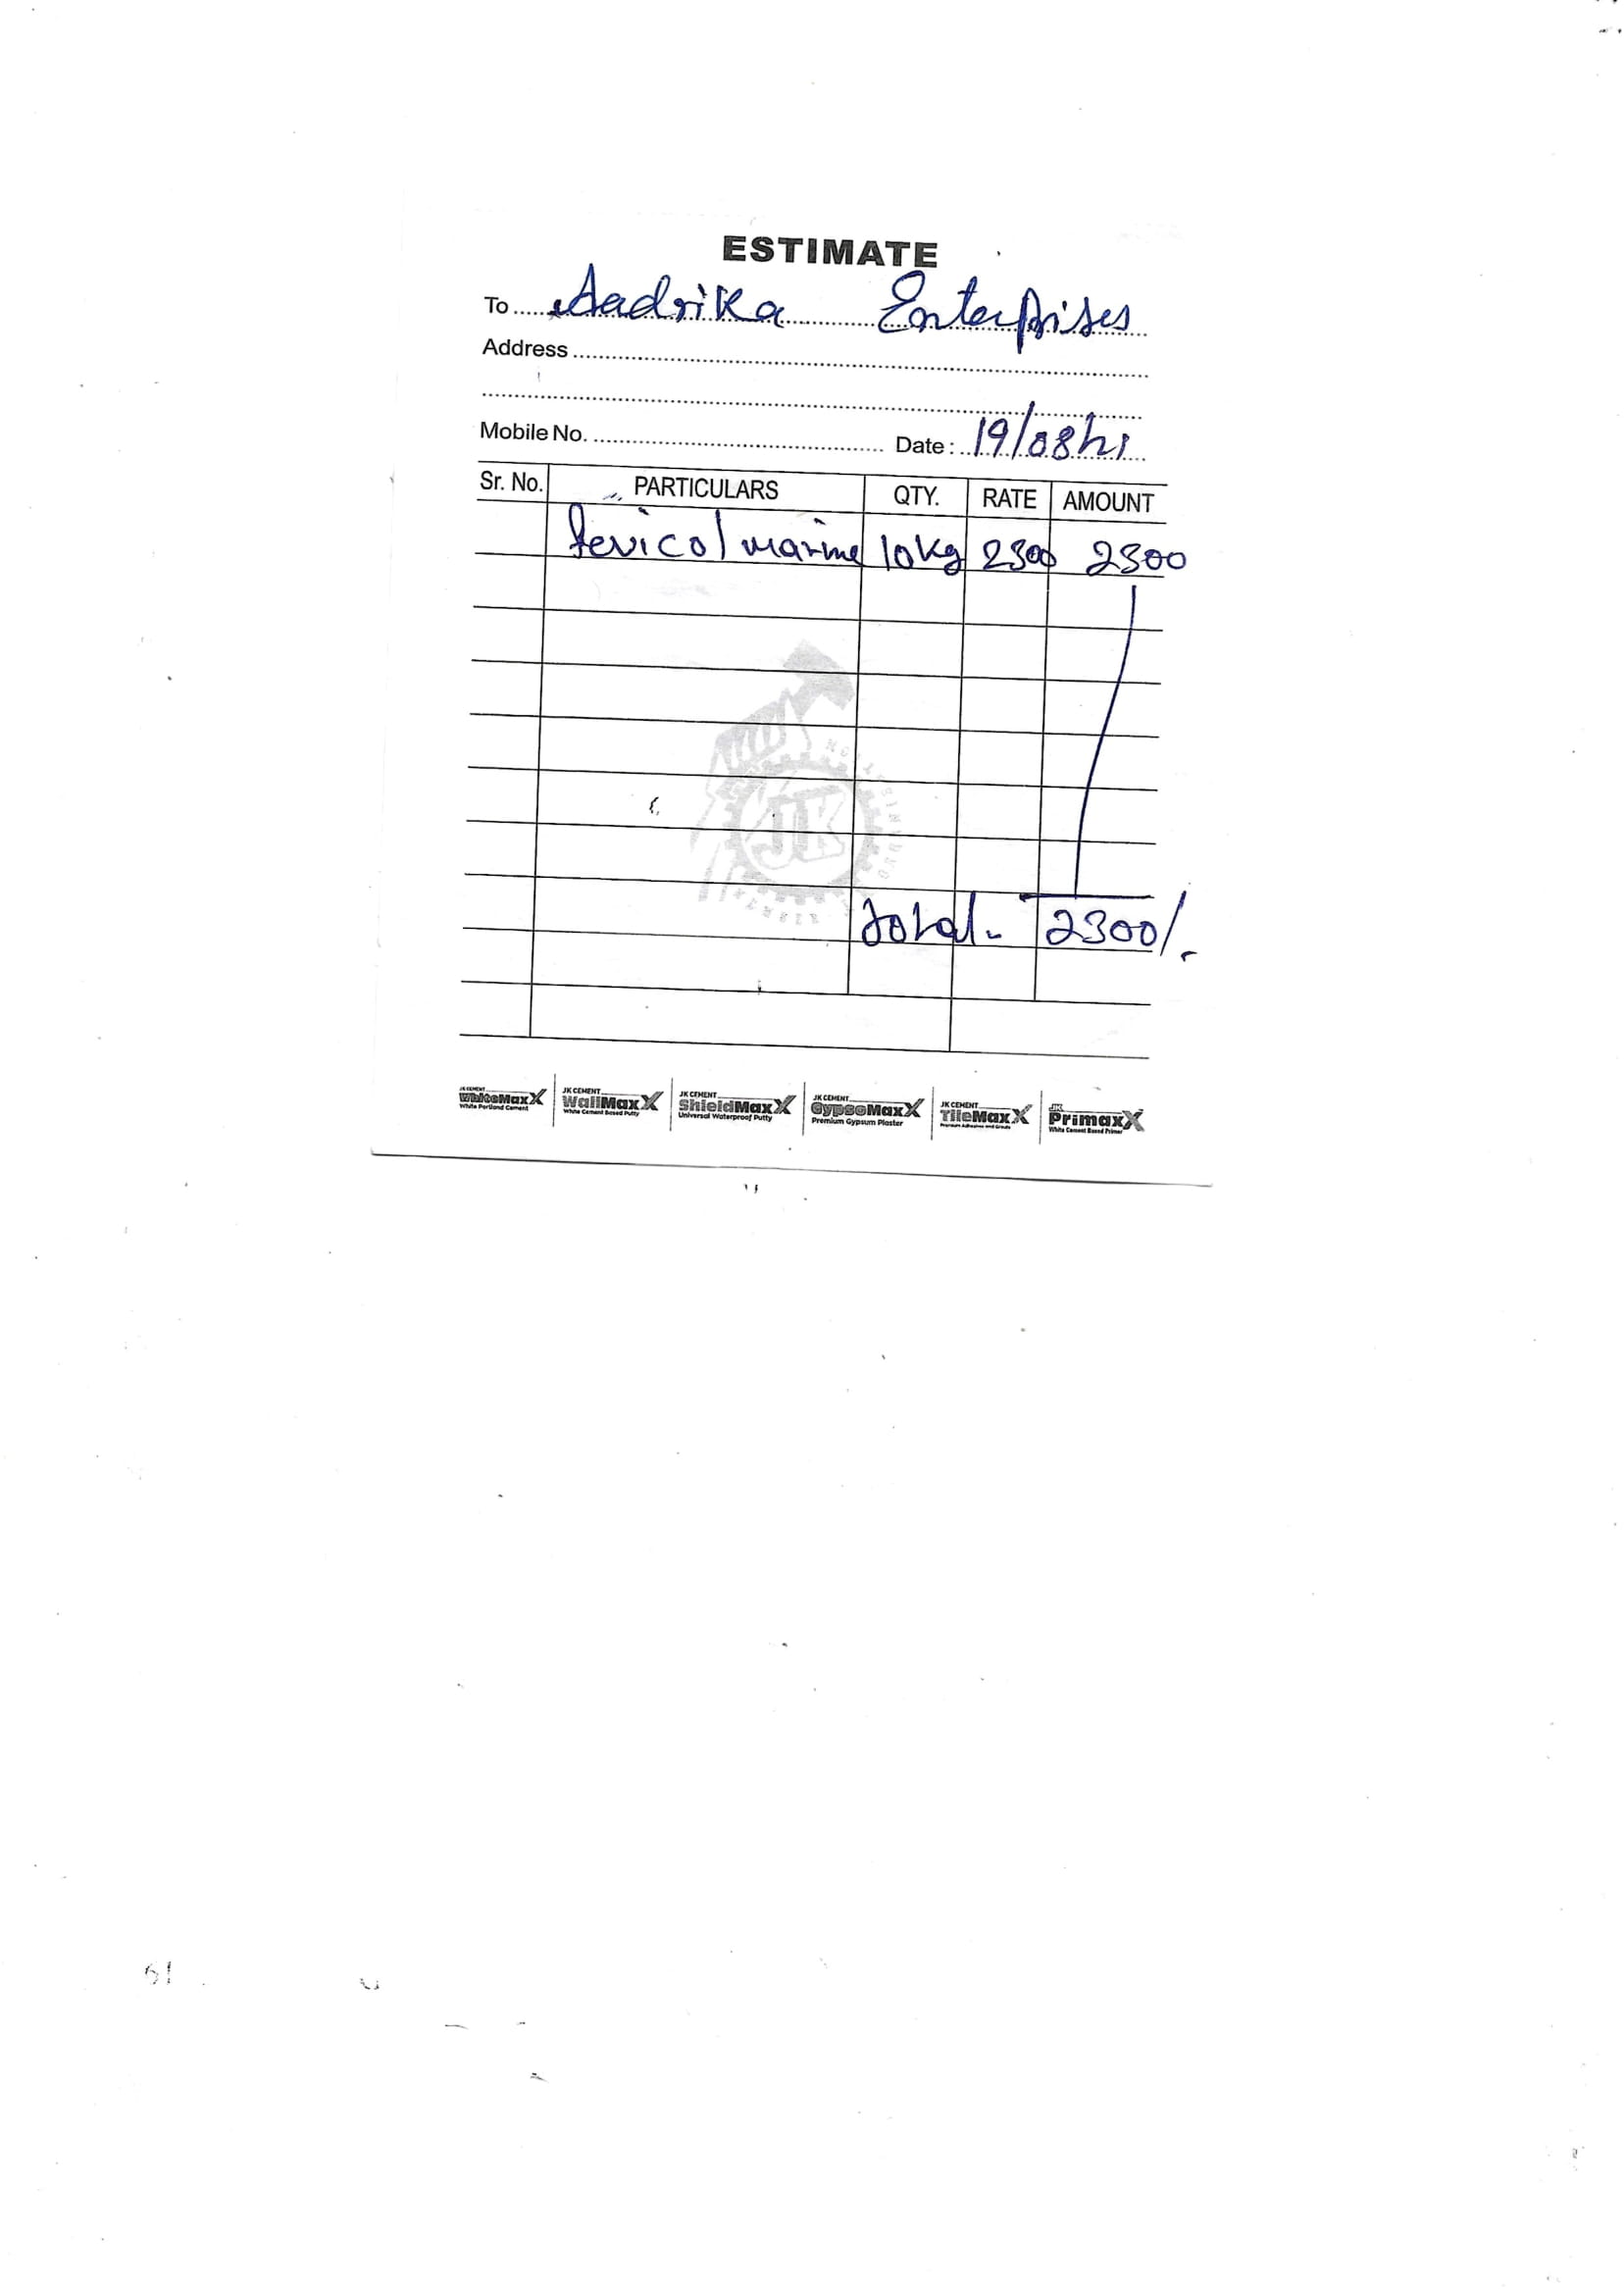 ESTIMATE
To Aadrika Enterprises
Address
Mobile No. Date: 19/08/21
Sr. No. PARTICULARS QTY. RATE AMOUNT
fevicol marine 10kg 2300 2300
JK
Total - 2300/-
JK CEMENT WhiteMaxX White Portland Cement
JK CEMENT WallMaxX White Cement Based Putty
JK CEMENT ShieldMaxX Universal Waterproof Putty
JK CEMENT GypsoMaxX Premium Gypsum Plaster
JK CEMENT TileMaxX
JK PrimaxX White Cement Based Primer